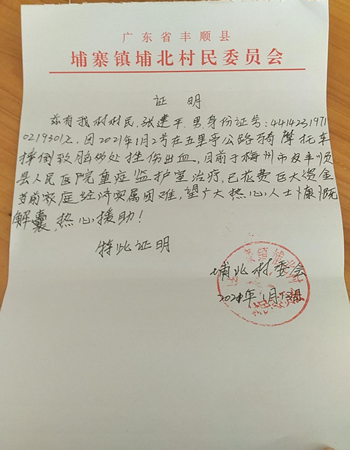 广东省丰顺县
埔寨镇埔北村民委员会
证明
兹有我村村民,张建平,男身份证号:4414231971
0219301Z,因2021年1月2号在五里亭公路骑摩托车
摔倒致脑伤处挫伤出血,目前于梅州市及丰顺
县人民医院重症监护室治疗,已花费巨大资金
家庭经济实属困难,望广大热心人士慷慨
解囊热心援助!
特此证明
埔北村委会
2021年1月